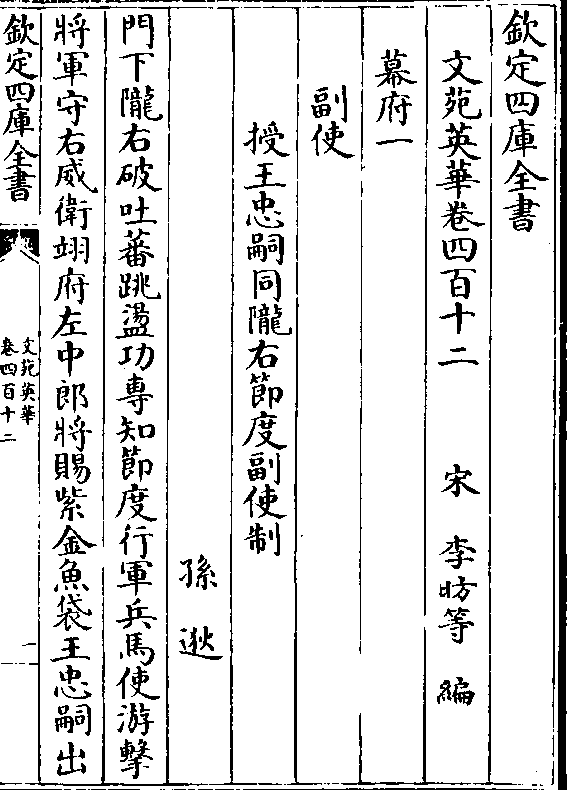 欽定四庫全書
文苑英華卷四百十二 宋 李昉等 編
幕府一
副使
授王忠嗣同隴右節度副使制
孫逖
門下隴右破吐蕃跳盪功專知節度行軍兵馬使游擊
將軍守右威衛翊府左中郎將賜紫金魚袋王忠嗣出
欽定四庫全書
文苑英華
卷四百十二
一